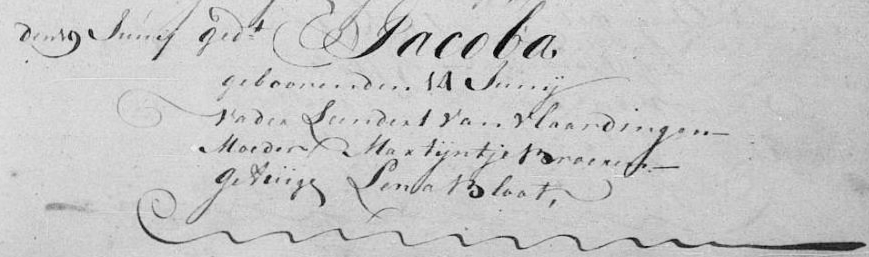 den 19 Junij ged.t Jacoba
gebooren den 14 Junij
Vader Leendert van Vlaardingen
Moeder Martijntje
Getuige Lena Bloot,